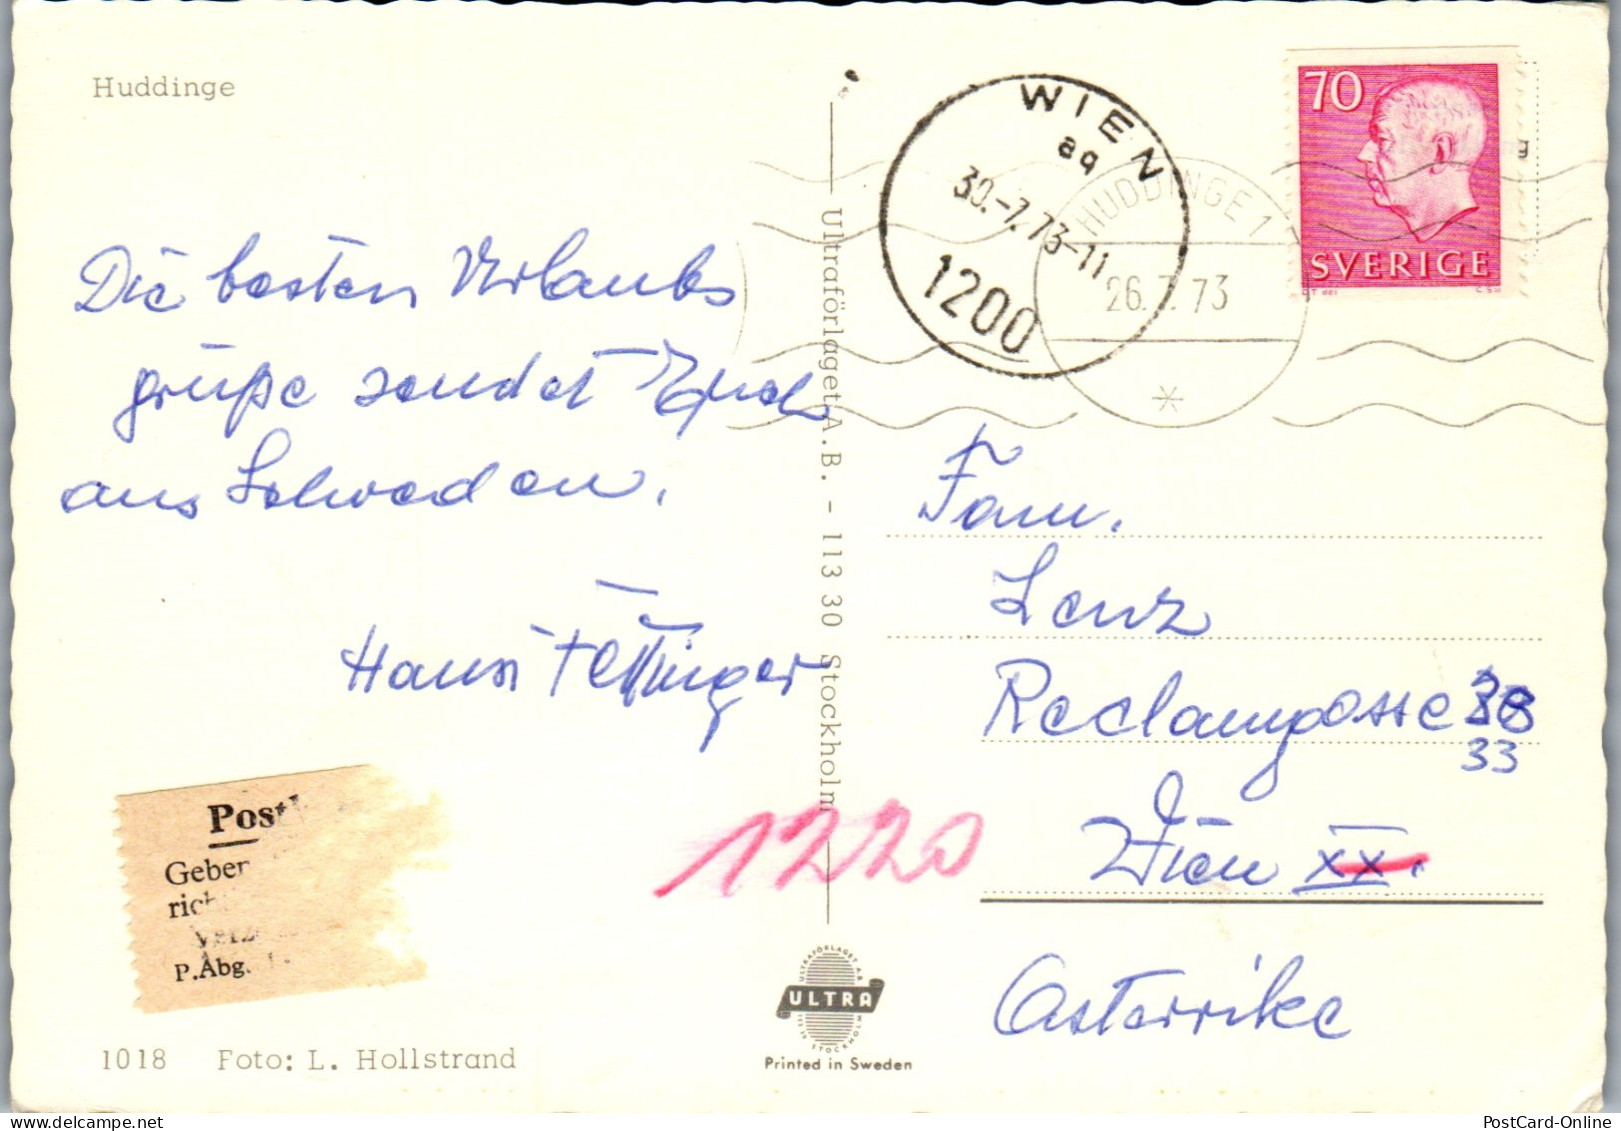 Huddinge
70
SVERIGE
WIEN
aq
30.-7.73-11
1200
HUDDINGE 1
26.7.73
Die besten Urlaubs
grüße sendet Euch
aus Schweden.
Hansi
Ultraförlaget A.B. - 113 30 Stockholm
Fam.
Lenz
Reclamgasse 38
33
Wien XX.
1220
Österrike
Post
Geber
P.Abg.
ULTRAFÖRLAGET A.B.
ULTRA
STOCKHOLM
Printed in Sweden
1018 Foto: L. Hollstrand
PostCard-Online